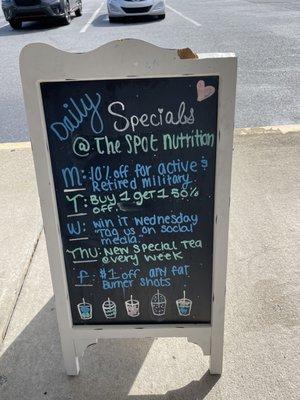 Daily Specials
@ The Spot Nutrition
M: 10% off for active &
Retired military.
T: Buy 1 get 1 50%
off.
W: win it wednesday
"Tag us on social
media."
THU: New special Tea
every week
F: $1 off any fat
Burner shots